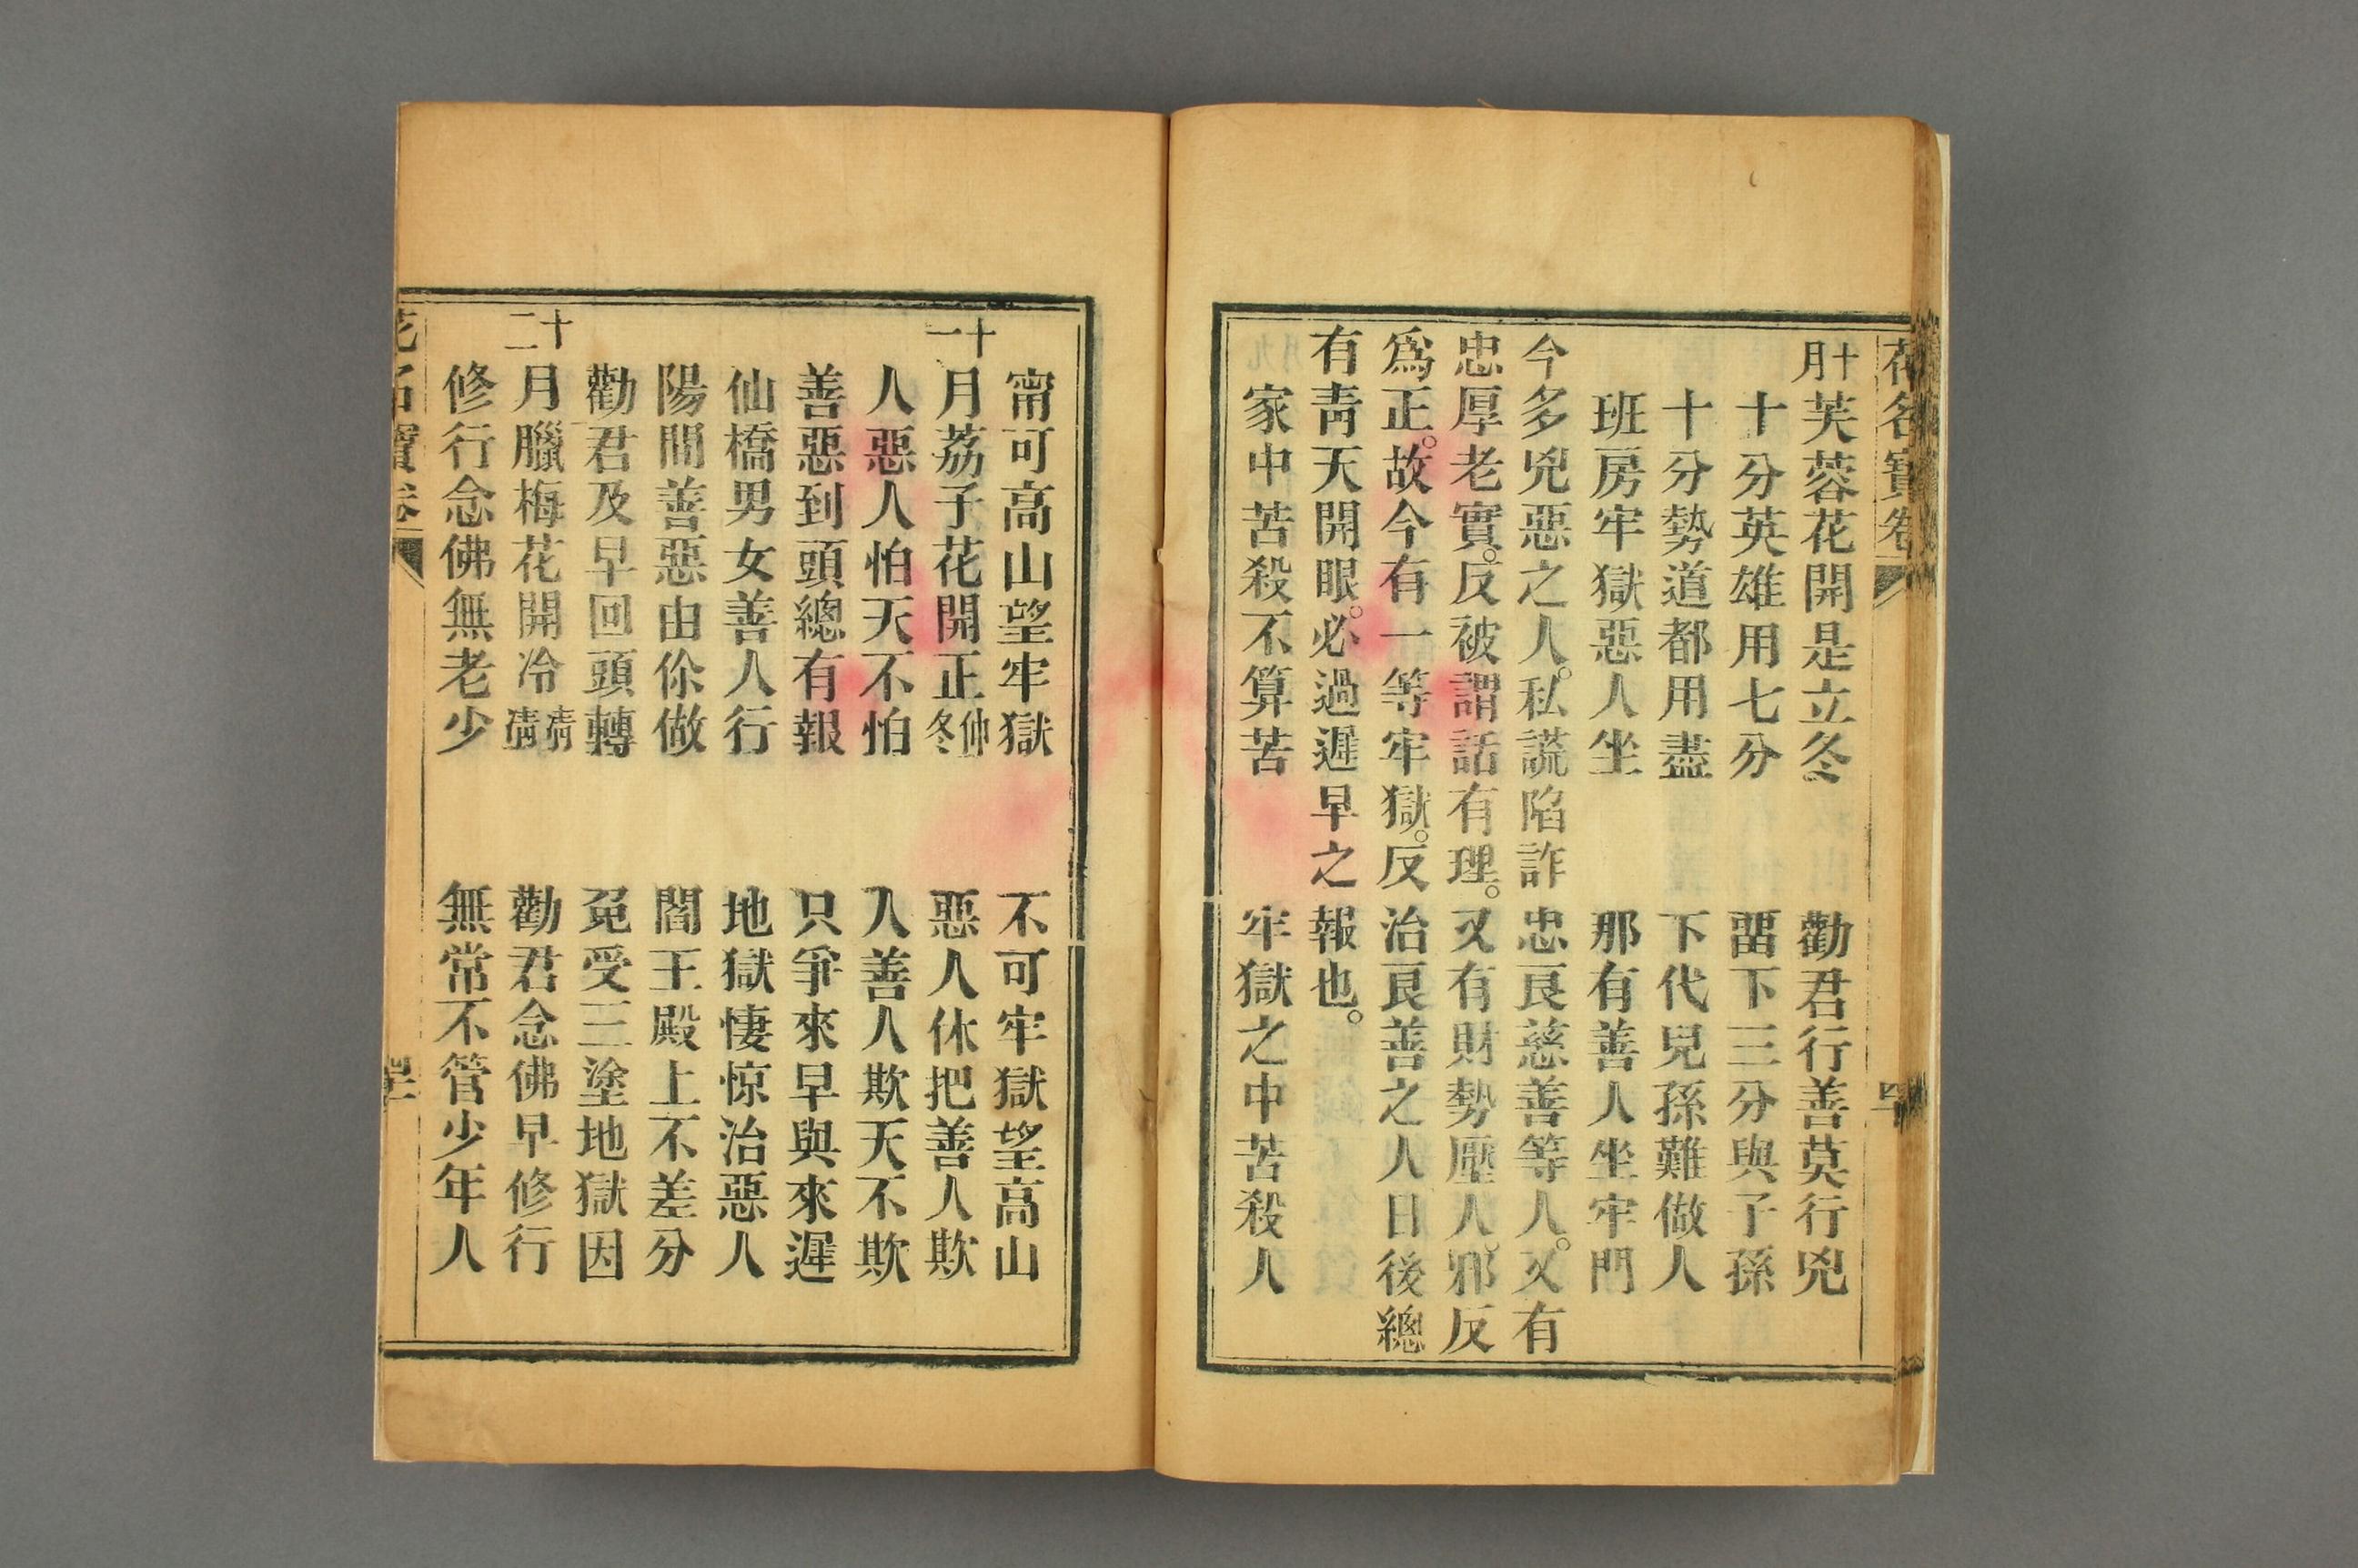 花名寶卷
十月芙蓉花開是立冬　勸君行善莫行兇
十分英雄用七分　畱下三分與子孫
十分勢道都用盡　下代兒孫難做人
班房牢獄惡人坐　那有善人坐牢門
今多兇惡之人。私謊陷詐忠良慈善等人。又有
忠厚老實。反被謂話有理。又有財勢壓人。邪反
爲正。故今有一等牢獄。反治良善之人日後總
有靑天開眼。必過遲早之報也。
家中苦殺不算苦　牢獄之中苦殺人
甯可高山望牢獄　不可牢獄望高山
十一月荔子花開正仲冬　惡人休把善人欺
人惡人怕天不怕　人善人欺天不欺
善惡到頭總有報　只爭來早與來遲
仙橋男女善人行　地獄悽惊治惡人
陽間善惡由你做　閻王殿上不差分
勸君及早回頭轉　免受三塗地獄因
十二月臘梅花開冷清清　勸君念佛早修行
修行念佛無老少　無常不管少年人
花名寶卷